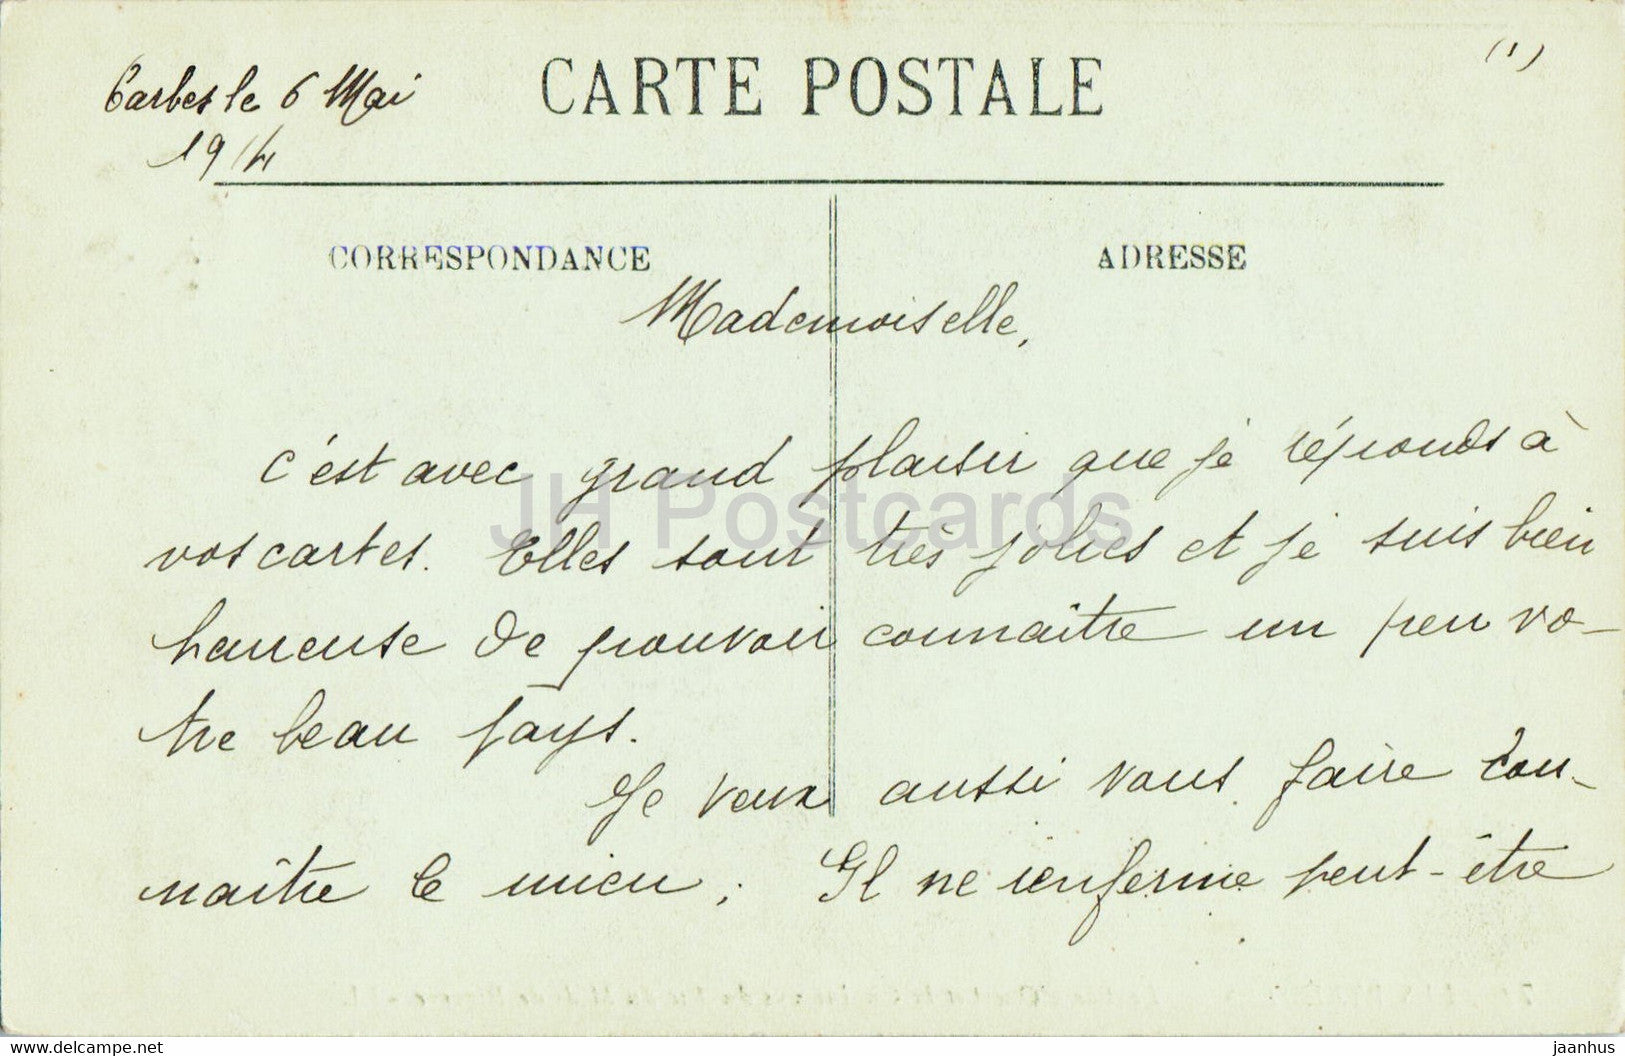 Tarbes le 6 Mai
1914
CARTE POSTALE
(1)
CORRESPONDANCE
ADRESSE
Mademoiselle,
c'est avec grand plaisir que je réponds à
vos cartes. Elles sont très jolies et je suis bien
heureuse de pouvoir connaître un peu vo-
tre beau pays.
Je veux aussi vous faire con-
naître le mien ; Il ne renferme peut-être
JH Postcards
www.delcampe.net
jaanhus